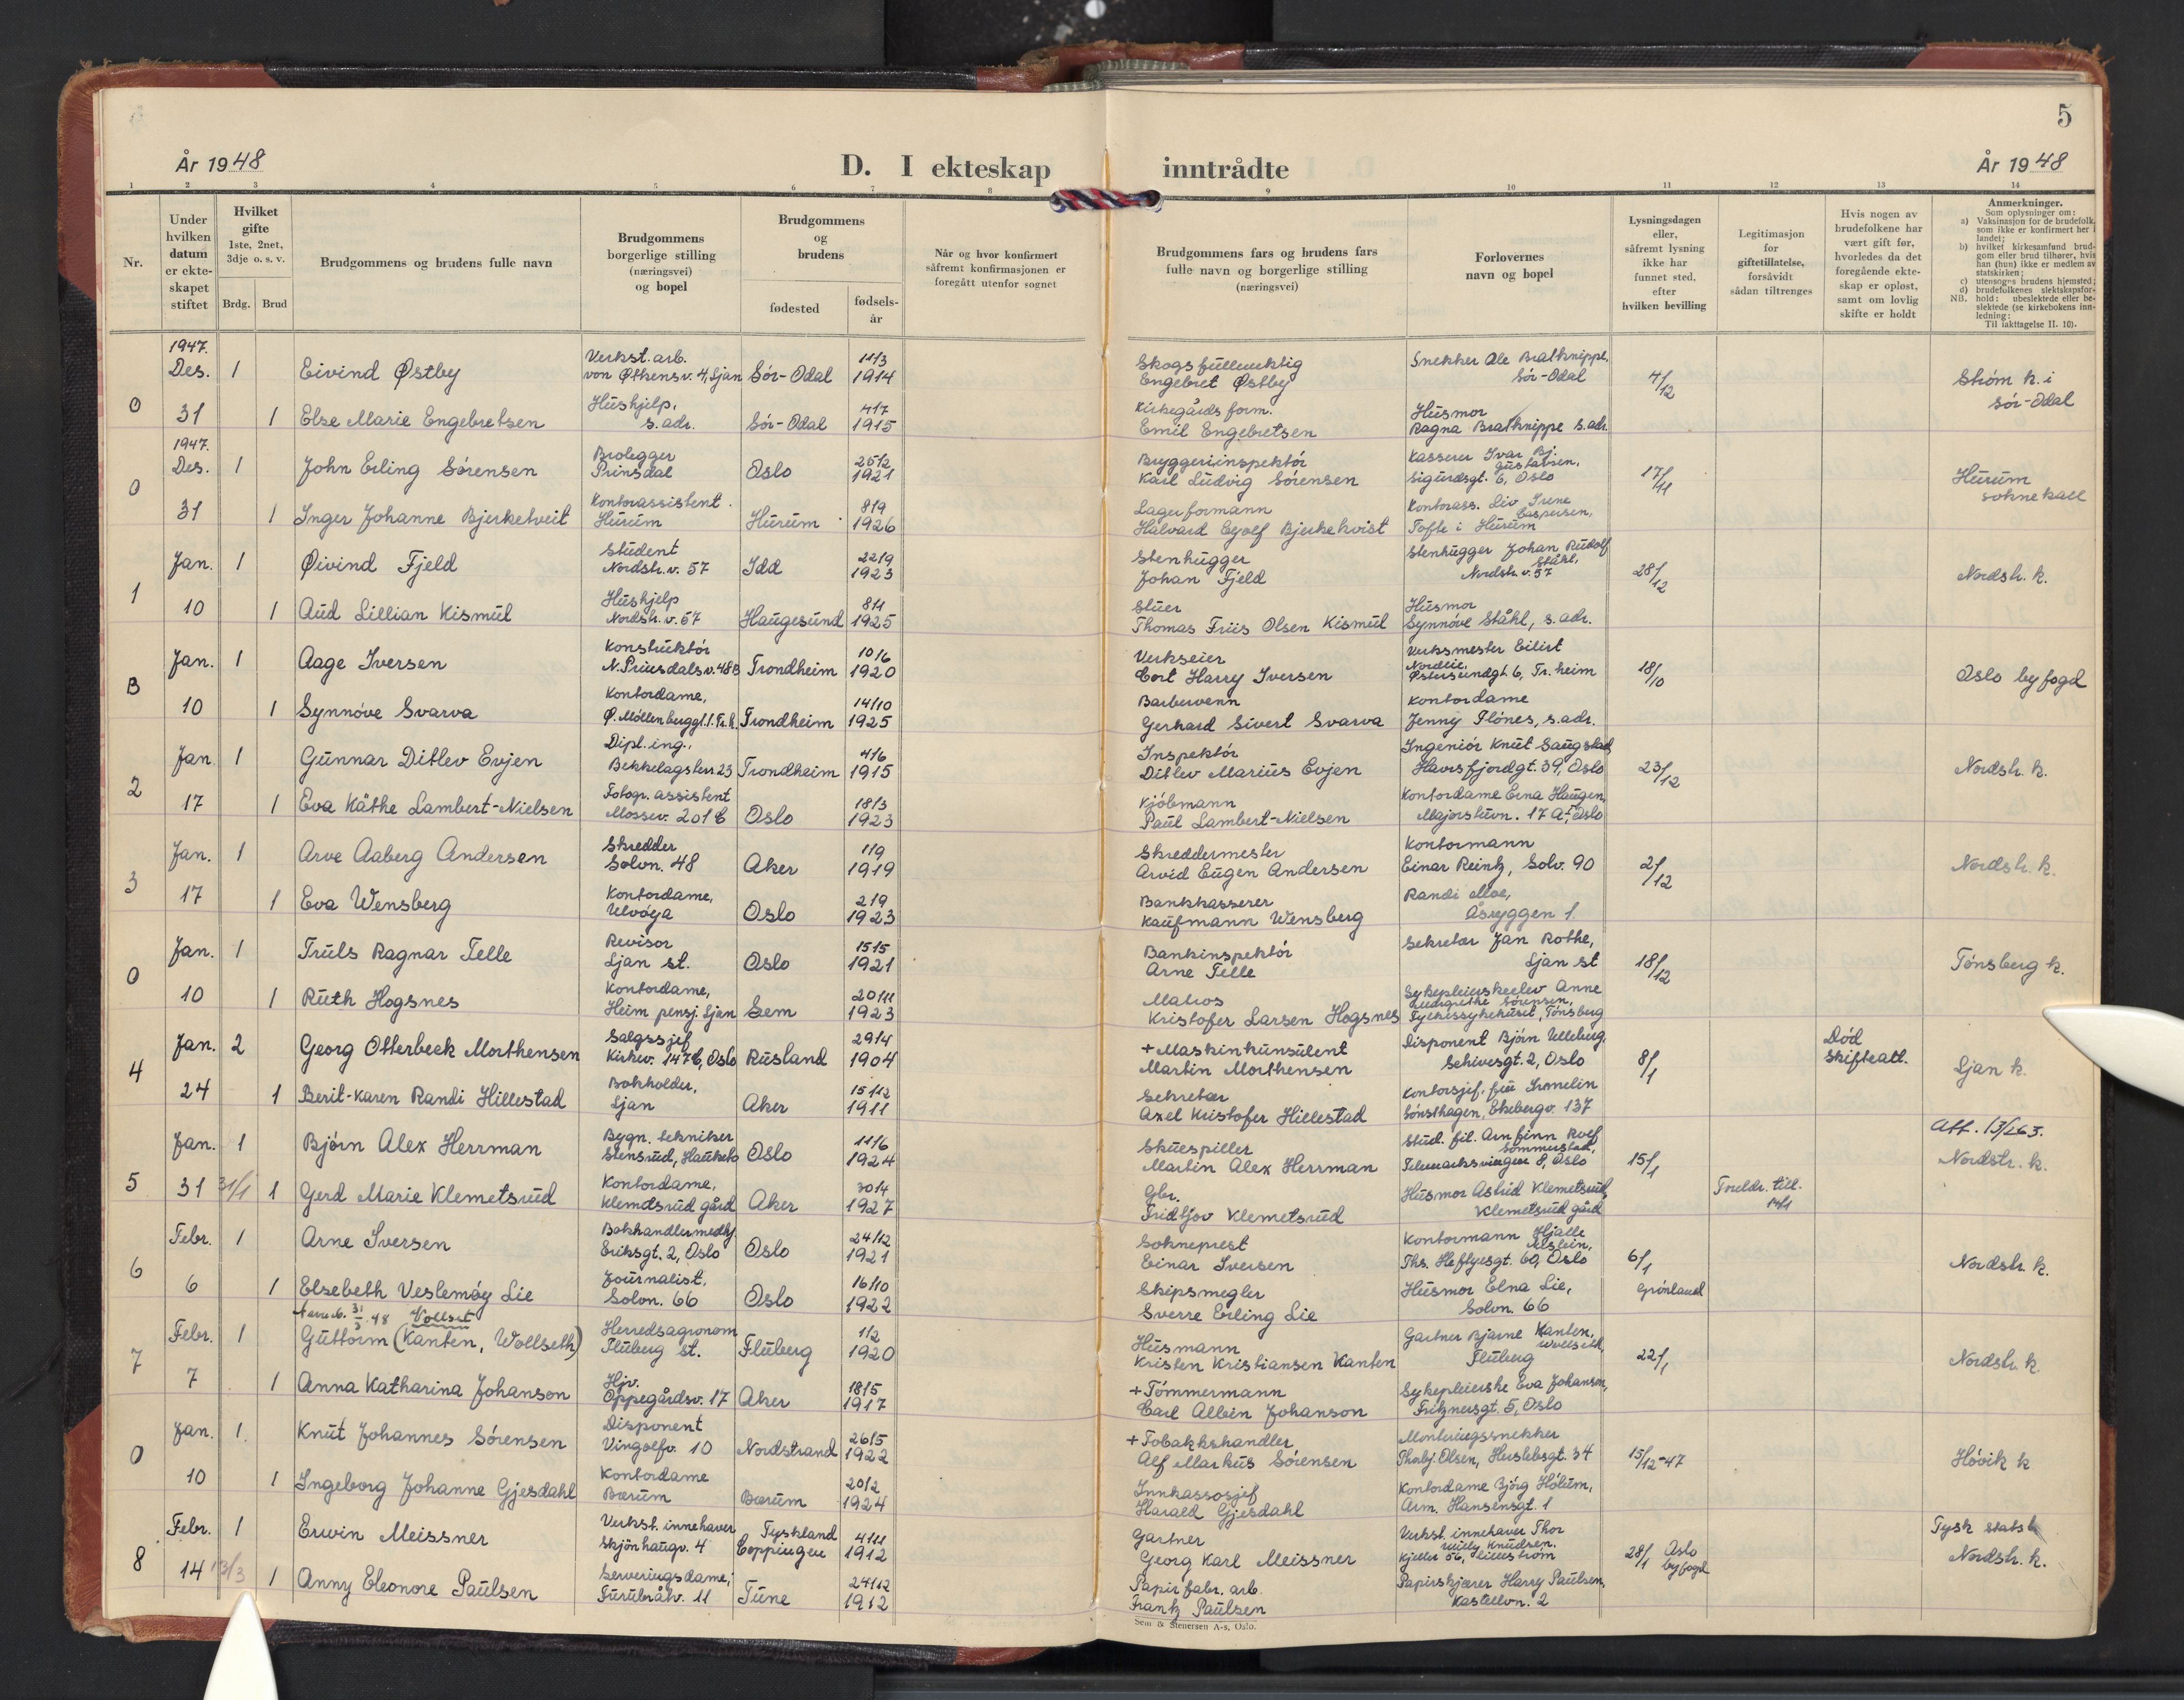 5
År 1948
D. I ekteskap inntrådte
År 1948
1 2 3 4 5 6 7 8 9 10 11 12 13 14
Nr.
Under hvilken datum er ekte- skapet stiftet
Hvilket gifte 1ste, 2net, 3dje o. s. v.
Brdg. Brud
Brudgommens og brudens fulle navn
Brudgommens borgerlige stilling (næringsvei) og bopel
Brudgommens og brudens
fødested
fødsels- år
Når og hvor konfirmert såfremt konfirmasjonen er foregått utenfor sognet
Brudgommens fars og brudens fars fulle navn og borgerlige stilling (næringsvei)
Forlovernes navn og bopel
Lysningsdagen eller, såfremt lysning ikke har funnet sted, efter hvilken bevilling
Legitimasjon for giftetillatelse, forsåvidt sådan tiltrenges
Hvis nogen av brudefolkene har vært gift før, hvorledes da det foregående ekte- skap er opløst, samt om lovlig skifte er holdt
Anmerkninger.
Som oplysninger om:
a) Vaksinasjon for de brudefolk, som ikke er konfirmert her i landet;
b) hvilket kirkesamfund brud- gom eller brud tilhører, hvis han (hun) ikke er medlem av statskirken;
c) utensogns brudens hjemsted;
d) brudefolkenes slektskapsfor- hold: ubeslektede eller be- slektede (se kirkebokens inn- ledning:
NB. Til iakttagelse II. 10).
0 1947. Des. 1 Eivind Østby Verkst. arb. von Øtkensv. 4, Ljan Sör-Odal 11/3 1914 Skogsfullmektig Engebret Østby Snekker Ole Bratknippe, Sör-Odal 4/12 Ström k. i Sör-Odal
31 1 Else Marie Engebretsen Hushjelp, s. adr. Sör-Odal 4/7 1915 Kirkegårds form. Emil Engebretsen Husmor Ragna Bratknippe s. adr.
0 1947. Des. 1 John Erling Sörensen Brolegger Prinsdal Oslo 25/2 1921 Bryggeriinspektör Karl Ludvig Sörensen Kasserer Ivar Bj. Gustavsen, Sigurdsgt. 6, Oslo 17/11 Hurum sokne kall
31 1 Inger Johanne Bjerketveit Kontorassistent. Hurum Hurum 8/9 1926 Lagerformann Halvard Eyolf Bjerkekvist Kontorass. Liv Irene Caspersen, Tofte i Hurum
1 Jan. 1 Øivind Fjeld Student Nordstr. v. 57 Idd 22/9 1923 Stenhugger Johan Fjeld Stenhugger Johan Rudolf Ståhl, Nordstr. v. 57 28/12 Nordstr. k.
10 1 Aud Lillian Kismul Hushjelp Nordstr. v. 57 Haugesund 8/11 1925 Stuer Thomas Friis Olsen Kismul Husmor Synnöve Ståhl, s. adr.
B Jan. 1 Aage Iversen Konstruktör N. Prinsdalsv. 48B Trondheim 10/6 1920 Verkseier Cort Harry Iversen Verksmester Eilirt Nordlie, Østersundgt. 6, Tr. heim 18/10 Oslo byfogd
10 1 Synnöve Svarva Kontordame, Ø. Möllenberggt. 1. Tr. h. Trondheim 14/10 1925 Barbervenn Gerhard Sivert Svarva Kontordame Jenny Flönes, s. adr.
2 Jan 1 Gunnar Ditlev Evjen Dipl. ing., Bekkelagsterr. 23 Trondheim 4/6 1915 Inspektör Ditlev Marius Evjen Ingeniör Knut Saugstad Havrsfjordgt. 39, Oslo 23/12 Nordstr. k.
17 1 Eva Käthe Lambert-Nielsen Fotogr. assistent Mossev. 201 C Oslo 18/3 1923 Kjöbmann Paul Lambert-Nielsen Kontordame Erna Haugen, Majorstuvn. 17 A, Oslo
3 Jan. 1 Arve Aaberg Andersen Skredder Solvn. 48 Aker 1/9 1919 Skreddermester Arvid Eugen Andersen Kontormann Einar Reintz, Solv. 90 2/12 Nordstr. k.
17 1 Eva Wensberg Kontordame, Ulvöya Oslo 2/9 1923 Bankkasserer Kaufmann Wensberg Randi Moe, Åsryggen 1.
0 Jan. 1 Truls Ragnar Telle Revisor Ljan st. Oslo 15/5 1921 Bankinspektör Arne Telle Sekretær Jan Rothe, Ljan st 18/12 Tönsberg k.
10 1 Ruth Hogsnes Kontordame, Heim pensj. Ljan Sem 20/11 1923 Matros Kristofer Larsen Hogsnes Sykepleierskeelev Anne Margrethe Sörensen, Fylkessykehuset, Tönsberg
4 Jan. 2 Georg Otterbeck Morthensen Salgssjef Kirkev. 147 C, Oslo Rusland 29/4 1904 + Maskinkunsulent Martin Morthensen Disponent Björn Ulleberg. Schivesgt. 2, Oslo 8/1 Död Skifteatt. Ljan k.
24 1 Berit-Karen Randi Hillestad Bokholder, Ljan Aker 15/12 1911 Sekretær Axel Kristofer Hillestad Kontorsjef. fru Tronelin Sönsthagen, Ekebergv. 137
5 Jan. 1 Björn Alex Herrman Bygn. tekniker Stensrud, Hauketo Oslo 11/6 1924 Skuespiller Martin Alex Herrman Stud. fil. Arnfinn Rolf Sommerstad, Telemarksvingen 8, Oslo 15/1 Att. 13/263. Nordstr. k.
31 31/1 1 Gerd Marie Klemetsrud Kontordame, Klemetsrud gård Aker 30/4 1927 Gbr. Fridtjov Klemetsrud Husmor Astrid Klemetsrud, Klemetsrud gård Foreldr. till. 14/1
6 Febr. 1 Arne Iversen Bokhandlermedhj. Eriksgt. 2, Oslo Oslo 24/12 1921 Sokneprest Einar Iversen Kontormann Hjalle Alstein, Ths. Heftyesgt. 60, Oslo 6/1 Grönland Nordstr. k.
6 1 Elsebeth Veslemöy Lie Journalist. Solvn. 66 Oslo 16/10 1922 Skipsmegler Sverre Erling Lie Husmor Elna Lie, Solvn. 66
7 Febr. 1 Navneb. 31/3. 48 Vollset Guttorm (Kanten, Wollseth) Herredsagronom Fluberg st. Fluberg 1/2 1920 Husmann Kristen Kristiansen Kanten Gartner Bjarne Kanten, Wollseth, Fluberg 22/1 Nordstr. k
7 1 Anna Katharina Johanson Hjv. Oppegårdsv. 17 Aker 18/5 1917 + Tömmermann Carl Albin Johanson Sykepleierske Eva Johanson, Fritznersgt. 5, Oslo
0 Jan. 1. Knut Johannes Sörensen Disponent Vingolfv. 10 Nordstrand 26/5 1922 + Tobakkshandler Alf Markus Sörensen Monteringssnekker Thorbj. Olsen, Herslebsgt. 34 15/12-47 Hövik k
10 1 Ingeborg Johanne Gjesdahl Kontordame Bærum Bærum 20/2 1924 Innkassosjef Harald Gjesdahl Kontordame Bjög Hölum, Arm. Hansensgt. 1
8 Febr. 1 Erwin Meissner Verkst. innehaver Skjönhaugv. 4 Tyskland Coppingen 4/11 1912 Gartner Georg Karl Meissner Verkst. innehaver Thor Willy Knudsen. Kjeller 56, Lillestrøm 28/1 Oslo byfogd Tysk statsk Nordstr. k.
14 13/3 1 Anny Eleonore Paulsen Serveringsdame, Furubråtv. 11 Tune 24/12 1912 Papirfabr. arb. Frantz Paulsen Papirskjærer Harry Paulsen, Kastellvn. 2
Sem & Stenersen A-s, Oslo.